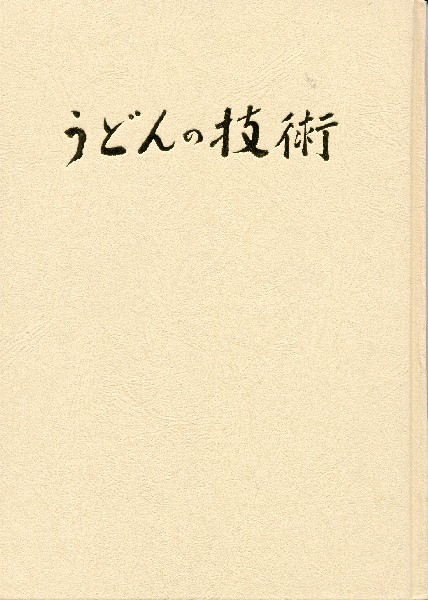 うどんの技術